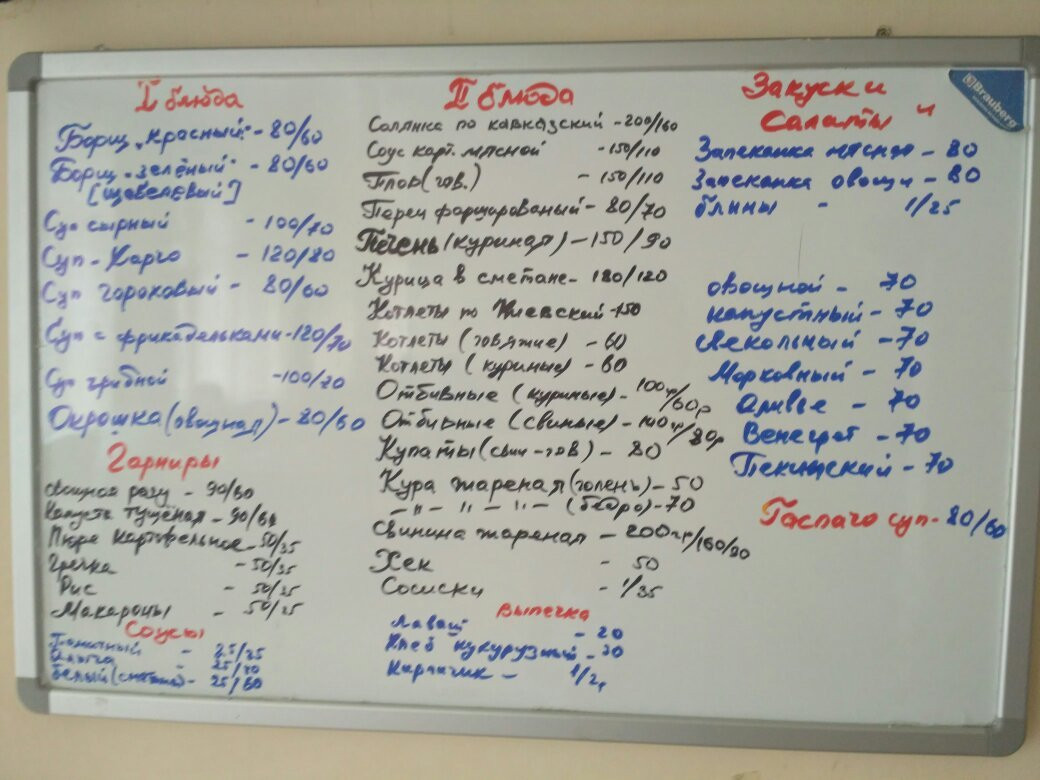 I блюда
Борщ „красный" - 80/60
Борщ „зелёный" - 80/60
[щавелевый]
Суп сырный - 100/70
Суп - Харчо - 120/80
Суп гороховый - 80/60
Суп с фрикадельками - 120/70
Суп грибной - 100/70
Окрошка (овощная) - 80/60
Гарниры
Овощное рагу - 90/60
Капуста тушёная - 90/60
Пюре картофельное - 50/35
Гречка - 50/35
Рис - 50/25
Макароны - 50/25
Соусы
Томатный - 25/25
25/20
Белый (сметана) - 25/60
II блюда
Солянка по кавказский - 200/160
Соус карт. мясной - 150/110
Плов (гов.) - 150/110
Перец фаршированый - 80/70
Печень (куриная) - 150/90
Курица в сметане - 180/120
Котлеты по Киевский - 150
Котлеты (говяжие) - 60
Котлеты (куриные) - 60
Отбивные (куриные) - 100гр/60р
Отбивные (свиные) - 100гр/80р
Купаты (свин-гов) - 80
Кура жареная (голень) - 50
-"- -"- -"- (бедро) - 70
Свинина жареная - 200гр/160/90
Хек - 50
Сосиски - 1/35
Выпечка
Лаваш - 20
Хлеб кукурузный - 30
Кирпичик - 1/2р
Закуски и
Салаты
Запеканка мясная - 80
Запеканка овощи - 80
блины - 1/25
овощной - 70
капустный - 70
Свекольный - 70
Морковный - 70
Оливье - 70
Венегрет - 70
Пекинский - 70
Гаспачо суп - 80/60
Brauberg